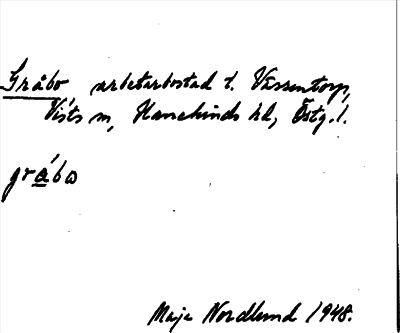 Gråbo, arbetarbostad t. Vässentorp,
Vists sn, Hanekinds hd, Östg. l.
gråbo
Maja Nordlund 1948.